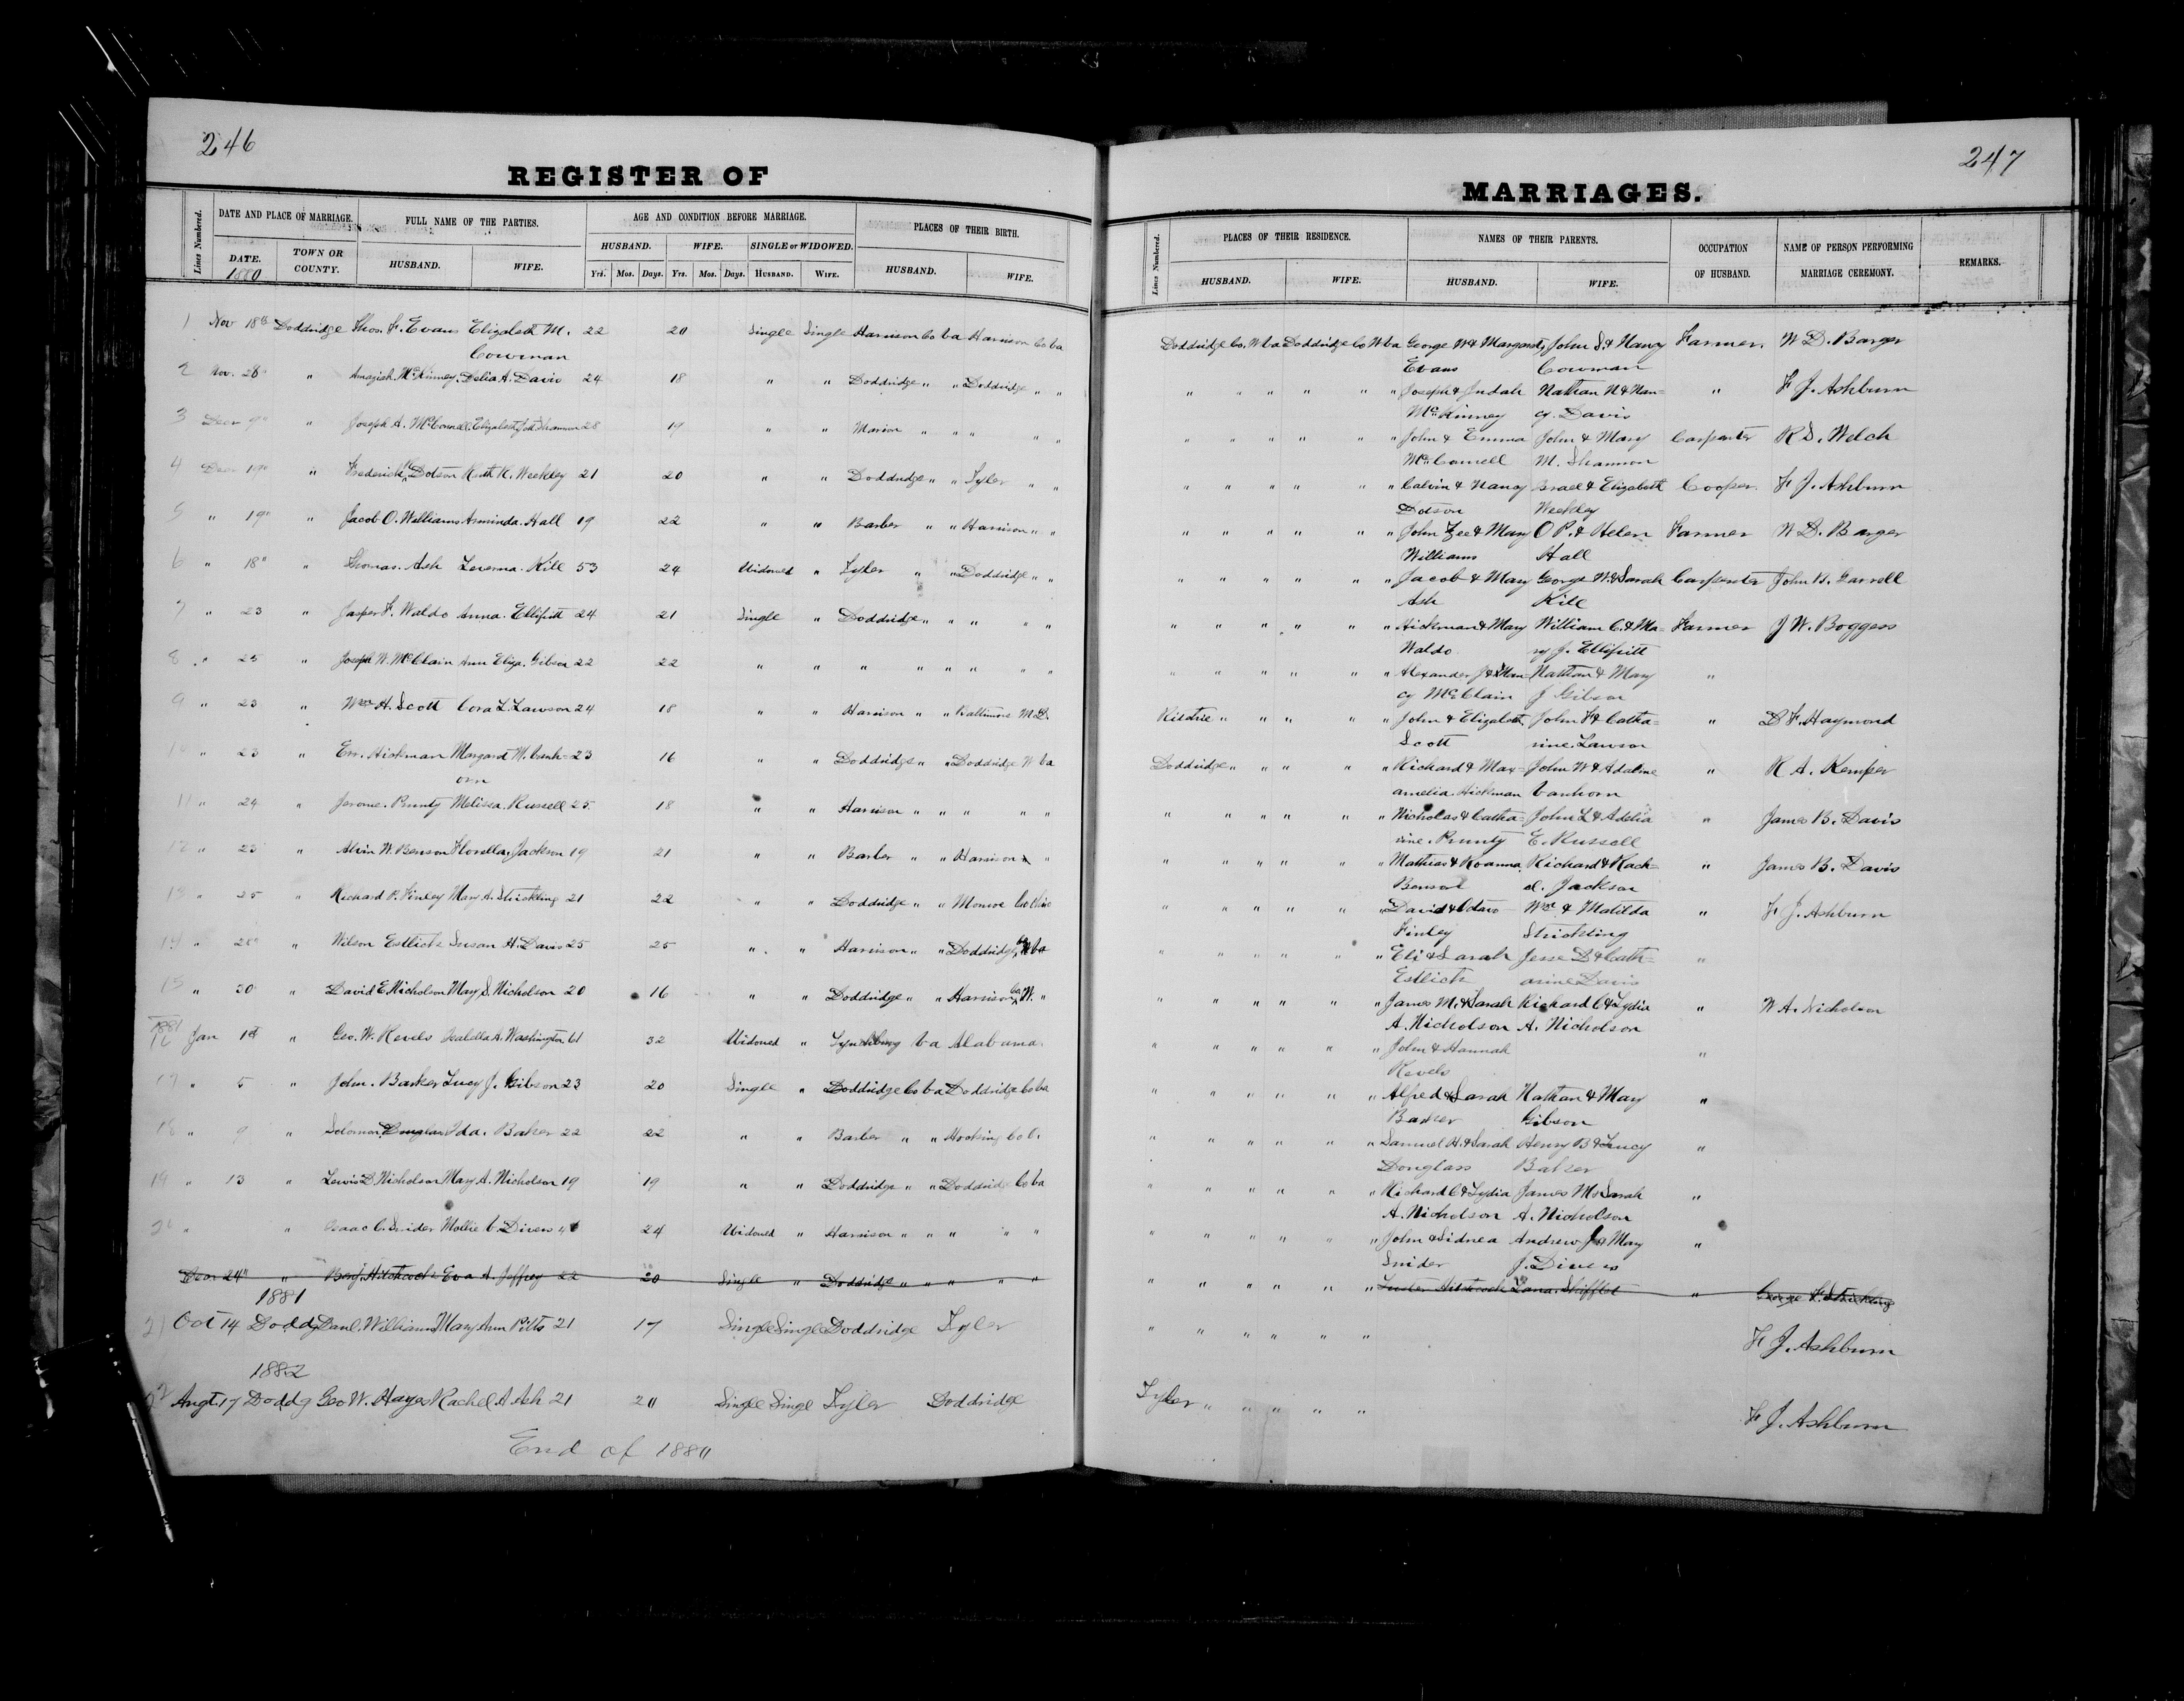 246
REGISTER OF
Lines Numbered. DATE AND PLACE OF MARRIAGE. FULL NAME OF THE PARTIES. AGE AND CONDITION BEFORE MARRIAGE. PLACES OF THEIR BIRTH.
HUSBAND. WIFE. SINGLE or WIDOWED.
DATE. TOWN OR COUNTY. HUSBAND. WIFE. Yrs. Mos. Days. Yrs. Mos. Days. HUSBAND. WIFE. HUSBAND. WIFE.
1880
1 Nov 18th Doddridge Thos. F. Evans Elizabeth M. 22 20 Single Single Harrison Co Va Harrison Co Va
Cowman
2 Nov. 28 " Amaziah McKinney Delia A. Davis 24 18 " " Doddridge " " Doddridge " "
3 Decr 9 " Joseph A. McConnell Elizabeth Shannon 28 19 " " Marion " " " " "
4 Decr 19 " Frederick Dotson Ruth R. Weekley 21 20 " " Doddridge " " Tyler " "
5 " 19 " Jacob O. Williams Arminda. Hall 19 22 " " Barber " " Harrison " "
6 " 18 " Thomas. Ash Leverna. Kill 53 24 Widowed " Tyler " " Doddridge " "
7 " 23 " Jasper F. Waldo Anna. Ellifritt 24 21 Single " Doddridge " " " " "
8 " 25 " Joseph W. McClain Ann Eliza. Gibson 22 22 " " " " " " " "
9 " 23 " Wm H. Scott Cora L. Lawson 24 18 " " Harrison " " Baltimore M.D.
10 " 23 " Em. Hickman Margaret M. Vanh= 23 16 " " Doddridge " " Doddridge W Va
orn
11 " 24 " Jerome. Prunty Melissa. Russell 25 18 " " Harrison " " " " "
12 " 23 " Alvin W. Benson Florella. Jackson 19 21 " " Barber " " Harrison "
13 " 25 " Richard P. Finley Mary A. Strickling 21 22 " " Doddridge " " Monroe Co Ohio
14 " 28 " Wilson Estlick Susan H. Davis 25 25 " " Harrison " " Doddridge Co W Va
15 " 30 " David E. Nicholson Mary S. Nicholson 20 16 " " Doddridge " " Harrison Co W. "
1881
16 Jan 1st " Geo. W. Revels Isabella A. Washington 61 32 Widowed " Lynchburg Va Alabama.
17 " 5 " John. Barker Lucy J. Gibson 23 20 Single " Doddridge Co Va Doddridge Co Va
18 " 9 " Solomon. Douglass Ida. Baker 22 22 " " Barber " " Hocking Co O.
19 " 13 " Lewis D. Nicholson Mary A. Nicholson 19 19 " " Doddridge " " Doddridge Co Va
20 " " Isaac C. Snider Mollie V. Divers 24 Widowed " Harrison " " " " "
Decr 24 " Benj. Hitchcock Eva A. Jeffrey 22 20 Single " Doddridge " " " " "
1881
21 Oct 14 Doddg Danl. Williams Mary Ann Pitts 21 17 Single Single Doddridge Tyler
1882
22 Augt. 17 Doddg Geo W. Hayes Rachel A Ash 21 20 Single Singl Tyler Doddridge
End of 1880
247
MARRIAGES.
Lines Numbered. PLACES OF THEIR RESIDENCE. NAMES OF THEIR PARENTS. OCCUPATION OF HUSBAND. NAME OF PERSON PERFORMING MARRIAGE CEREMONY. REMARKS.
HUSBAND. WIFE. HUSBAND. WIFE.
Doddridge Co. W Va Doddridge Co W Va George W & Margaret John S. & Nancy Farmer. W D. Barger
Evans Cowman
" " " " " " Joseph & Judah Nathan N & Nan= " F J. Ashburn
McKinney cy. Davis
" " " " " " John & Emma John & Mary Carpenter R D. Welch
McConnell M. Shannon
" " " " " " Calvin & Nancy Israel & Elizabeth Cooper. F J. Ashburn
Dotson Weekley
" " " " " " John Zee & Mary O P. & Helen Farmer W D. Barger
Williams Hall
" " " " " " Jacob & Mary George W. & Sarah Carpenter John B. Garrell
Ash Kill
" " " " " " Hickman & Mary William C. & Ma= Farmer J W. Boggess
Waldo ry J. Ellifritt
" " " " " " Alexander J & Nan= Nathan & Mary "
cy McClain J Gibson
Ritchie " " " " " John & Elizabeth John F & Catha= " D F. Haymond
Scott rine. Lawson
Doddridge " " " " " Richard & Max= John W & Adaline " R A. Kemper
amelia. Hickman Vanhorn
" " " " " " Nicholas & Catha= John L & Adelia " James B. Davis
rine. Prunty E. Russell
" " " " " " Mathias & Roanna Richard & Rach= " James B. Davis
Benson el. Jackson
" " " " " " David & Octavo Wm & Matilda " F J. Ashburn
Finley Strickling
" " " " " " Eli & Sarah Jesse D & Cath= "
Estlick arine Davis
" " " " " " James M. & Sarah Richard C & Lydia " W A. Nicholson
A. Nicholson A. Nicholson
" " " " " " John & Hannah "
Revels
" " " " " " Alfred & Sarah Nathan & Mary "
Barker Gibson
" " " " " " Samuel H. & Sarah Henry B & Lucy "
Douglass Baker
" " " " " " Richard C & Lydia James M & Sarah "
A. Nicholson A. Nicholson
" " " " " " John & Sidnea Andrew J & Mary "
Snider J. Divers
" " " " " " Hitchcock Lana. Shifflet " George F. Strickling
" " " " " " F J. Ashburn
Tyler " " " " " F J. Ashburn